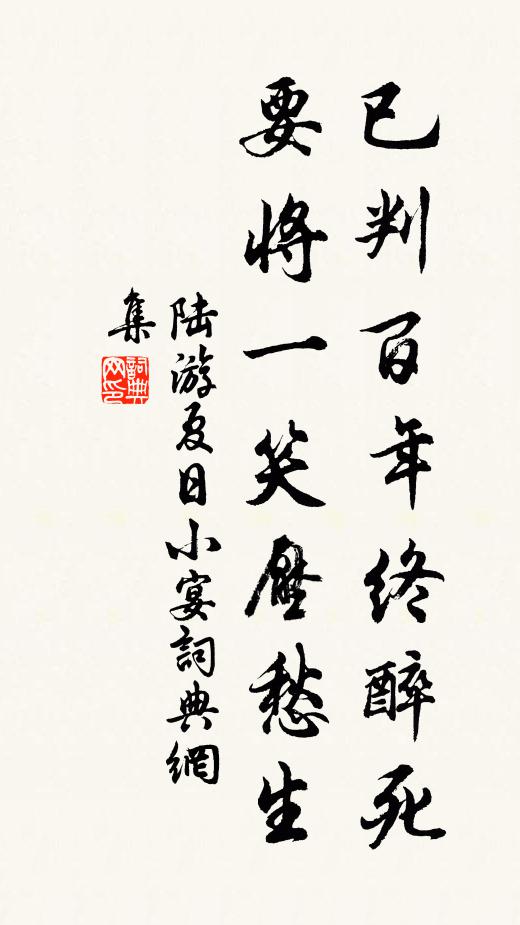 已判百年终醉死
要将一笑壓愁生
陆游夏日小宴詞典網
集
詞典
网印